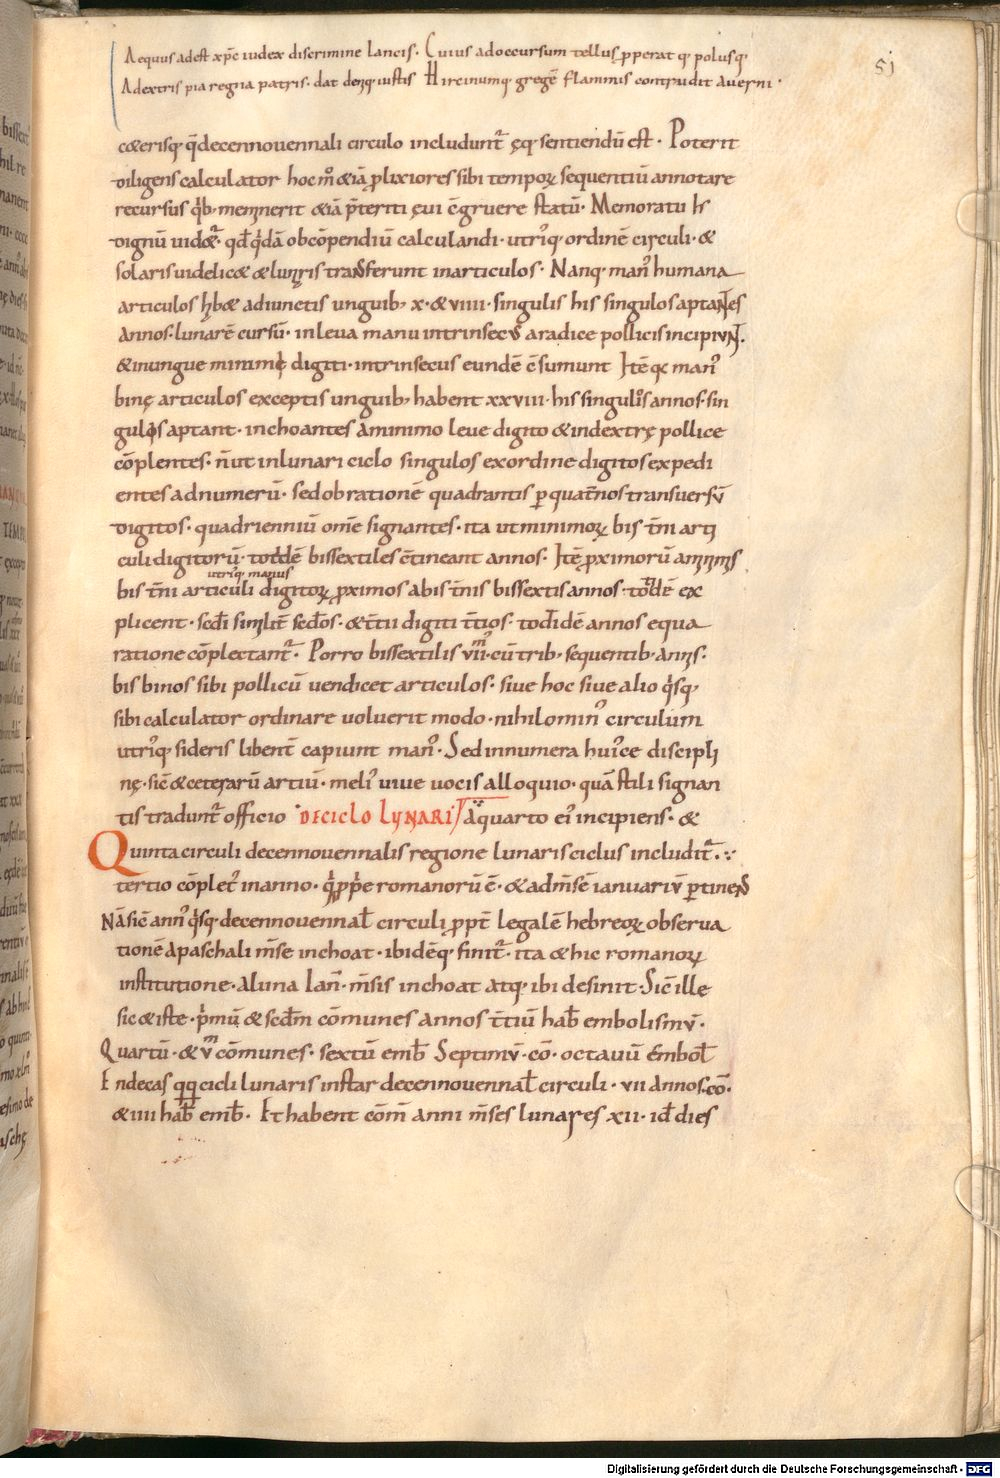 Aequus adest xp̄e iudex discrimine lancis. Cuius adoccursum tellus pperat q; polusq;
Adextris pia regna patris. dat denq; iustis Hircinumq; gregē flammis contrudit averni.
51
c&erisq; q̄ decennouennali circulo includunt̄ ęq; sentiendū est. Poterit
diligens calculator hoc m̊ &iā plixiores sibi tempoꝝ sequentiū annotare
recursus q̇b; memnerit &iā p̄teriti ęui c̄gruere statū. Memoratu ħ
dignū uid&ur̄. qd̄ q̇dā obcōpendiū calculandi. utriq; ordinē circuli. &
solaris uidelic& & lunaris transferunt inarticulos. Nanq; man᾽ humana
articulos hab& adiunctis unguib; x. & viiii. singulis his singulos aptantes
annos. lunarē cursū. inleua manu intrinsecus aradice pollicis incipiunt.
&inungue minimi digiti. intrinsecus eundē c̄sumunt Itē qc man᾽
binę articulos exceptis unguib; habent xxviii. his singulos annos. sin
gulos aptant. inchoantes aminimo leue digito &indextrę pollice
cōplentes. n̄ ut inlunari ciclo singulos exordine digitos expedi
entes adnumerū. sed ob rationē quadrantis p quat̄nos transuersū
digitos. quadrienniū om̄e signantes. ita ut minimoꝝ bis t̄ni arti
culi digitorū. totidē bissextiles c̄tineant annos. Itē pximorū amanus
utriq; manus
bis t̄ni articuli digitoꝝ pximos abis t̄nis bissextis annos. totidē ex
plicent. scdi similit̄ scdos. & t̄tii digiti t̄tios. totidē annos equa
ratione cōplectant̄. Porro bissextilis vii᾽. cū trib; sequentib; annis.
bis binos sibi pollicū uendicet articulos. siue hoc siue alio q̇sq;
sibi calculator ordinare uoluerit modo. nihilomin᾽ circulum
utriq; sideris libent̄ capiunt man᾽. Sed innumera hui᾽ce discipli
nę. sic̄ & ceterarū artiū. meli᾽ uiue uocis alloquio. quā stili signan
tis tradunt̄ officio DE CICLO LUNARI aquarto ei᾽ incipiens. &
Quinta circuli decennouennalis regione lunaris ciclus includit̄.
tertio cōplet᾽ inanno. q̇ pp̄e romanorū ē. & ad m̄sē ianuariū ptinens
Nā sic̄ ann᾽ q̇sq; decennouennal̄ circuli ppt̄ legalē hebreoꝝ obserua
tionē apaschali m̄se inchoat. ibidēq; finit̄. ita & hic romanoꝝ
institutione. aluna Ian̄. m̄sis inchoat atq; ibi desinit. Sic̄ ille
sic & iste. ṗmū & scdm cōmunes annos t̄tiū hab̄ embolismū.
Quartū. & v̄ cōmunes. sextū emb̄ Septimū. cō. octauū embol̄
Endecas qq; cicli lunaris instar decennouennal̄ circuli. vii annos. cō.
& iiii hab̄ emb̄. Et habent cōm̄ anni m̄ses lunares xii. id̄ dies
Digitalisierung gefördert durch die Deutsche Forschungsgemeinschaft - DFG